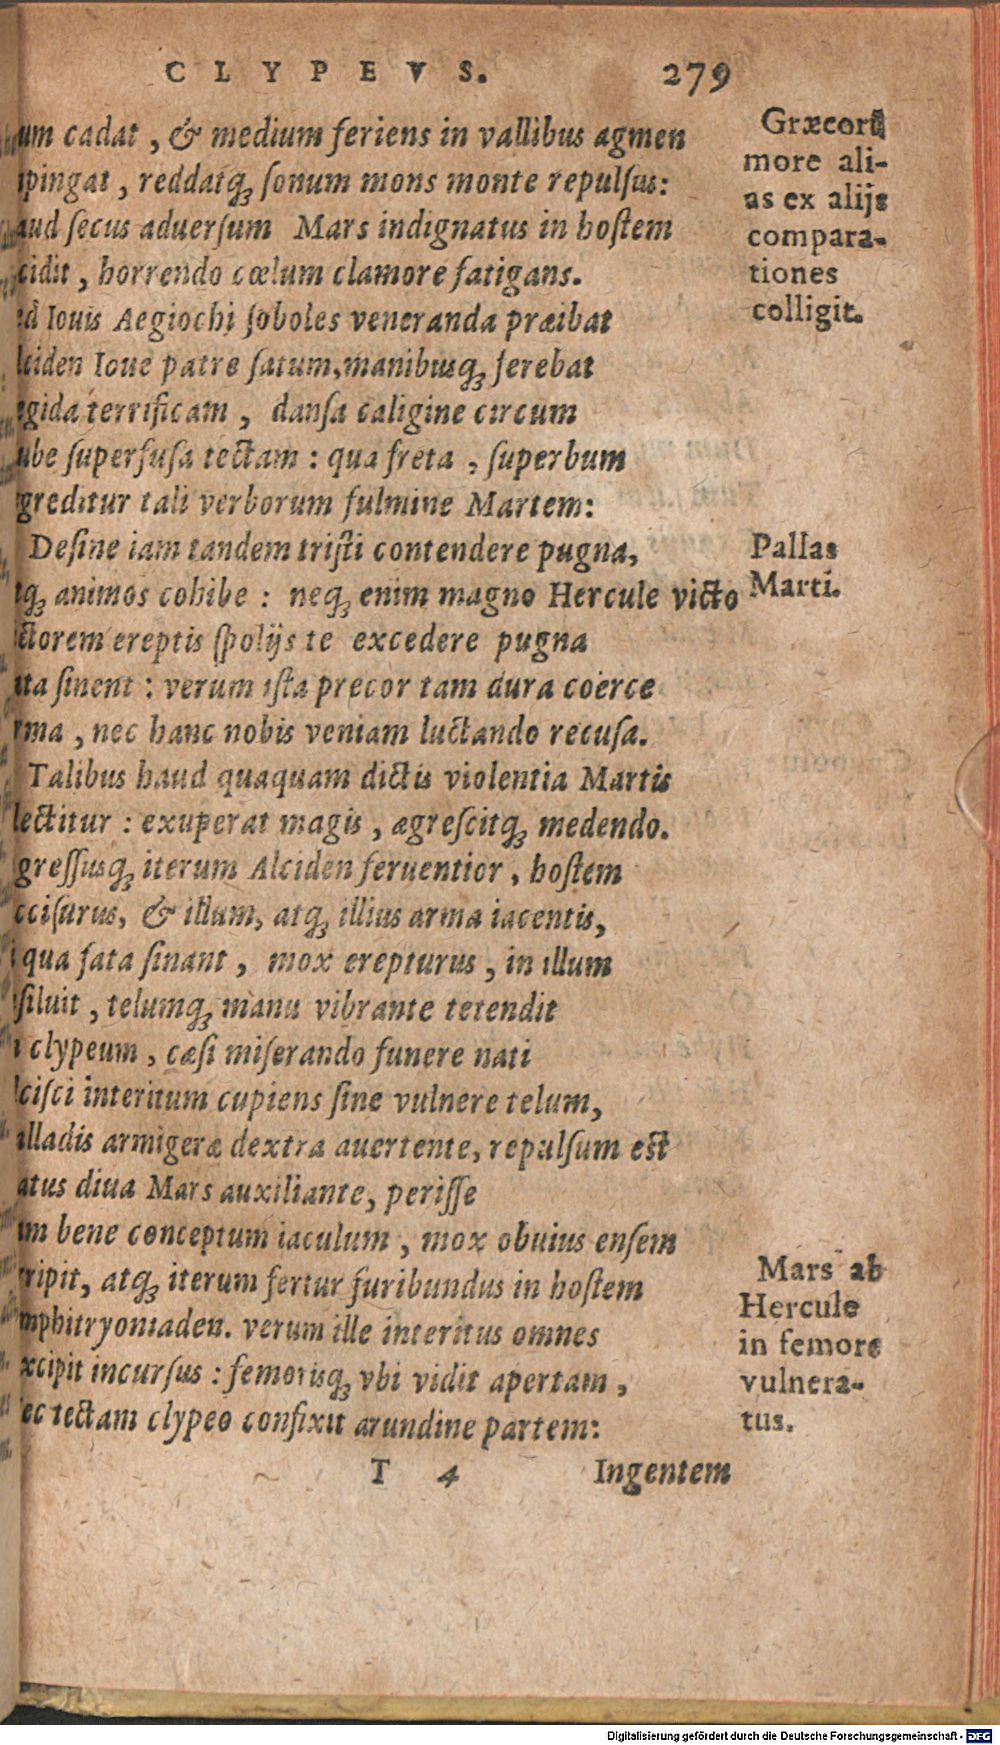 CLYPEVS. 279
um cadat, & medium feriens in vallibus agmen
pingat, reddatq́; ſonum mons monte repulſus:
aud ſecus aduerſum Mars indignatus in hoſtem
cidit, horrendo cœlum clamore fatigans.
Iouis Aegiochi ſoboles veneranda præibat
ciden Ioue patre ſatum, manibusq́; ferebat
gida terrificam, danſa caligine circum
ube ſuperfuſa tectam: qua freta, ſuperbum
greditur tali verborum fulmine Martem:
Deſine iam tandem triſti contendere pugna,
tq́; animos cohibe: neq́; enim magno Hercule victo
ctorem ereptis ſpolijs te excedere pugna
ta ſinent: verum iſta precor tam dura coërce
rma, nec hanc nobis veniam luctando recuſa.
Talibus haud quaquam dictis violentia Martis
lectitur: exuperat magis, ægreſcitq́; medendo.
greſſusq́; iterum Alciden feruentior, hoſtem
cciſurus, & illum, atq́; illius arma iacentis,
i qua fata ſinant, mox erepturus, in illum
ſiluit, telumq́; manu vibrante tetendit
clypeum, cæſi miſerando funere nati
lciſci interitum cupiens ſine vulnere telum,
lladis armigeræ dextra auertente, repulſum eſt
atus diua Mars auxiliante, periſſe
m bene conceptum iaculum, mox obuius enſem
ripit, atq́; iterum fertur furibundus in hoſtem
mphitryoniaden. verum ille interitus omnes
xcipit incurſus: femorisq́; vbi vidit apertam,
ec tectam clypeo confixit arundine partem:
T 4 Ingentem
Græcorū
more ali-
as ex alijs
compara-
tiones
colligit.
Pallas
Marti.
Mars ab
Hercule
in femore
vulnera-
tus.
Digitalisierung gefördert durch die Deutsche Forschungsgemeinschaft - DFG